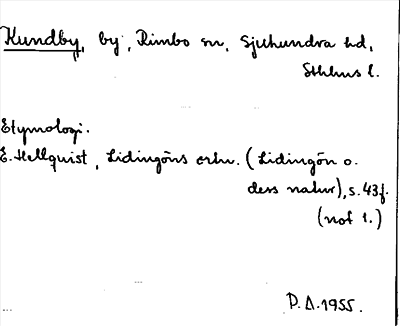 Kundby, by, Rimbo sn, Sjuhundra hd,
Sthlms l.
Etymologi.
E. Hellquist, Lidingöns ortn. (Lidingön o.
dess natur), s. 43f.
(not 1.)
P.A. 1955.